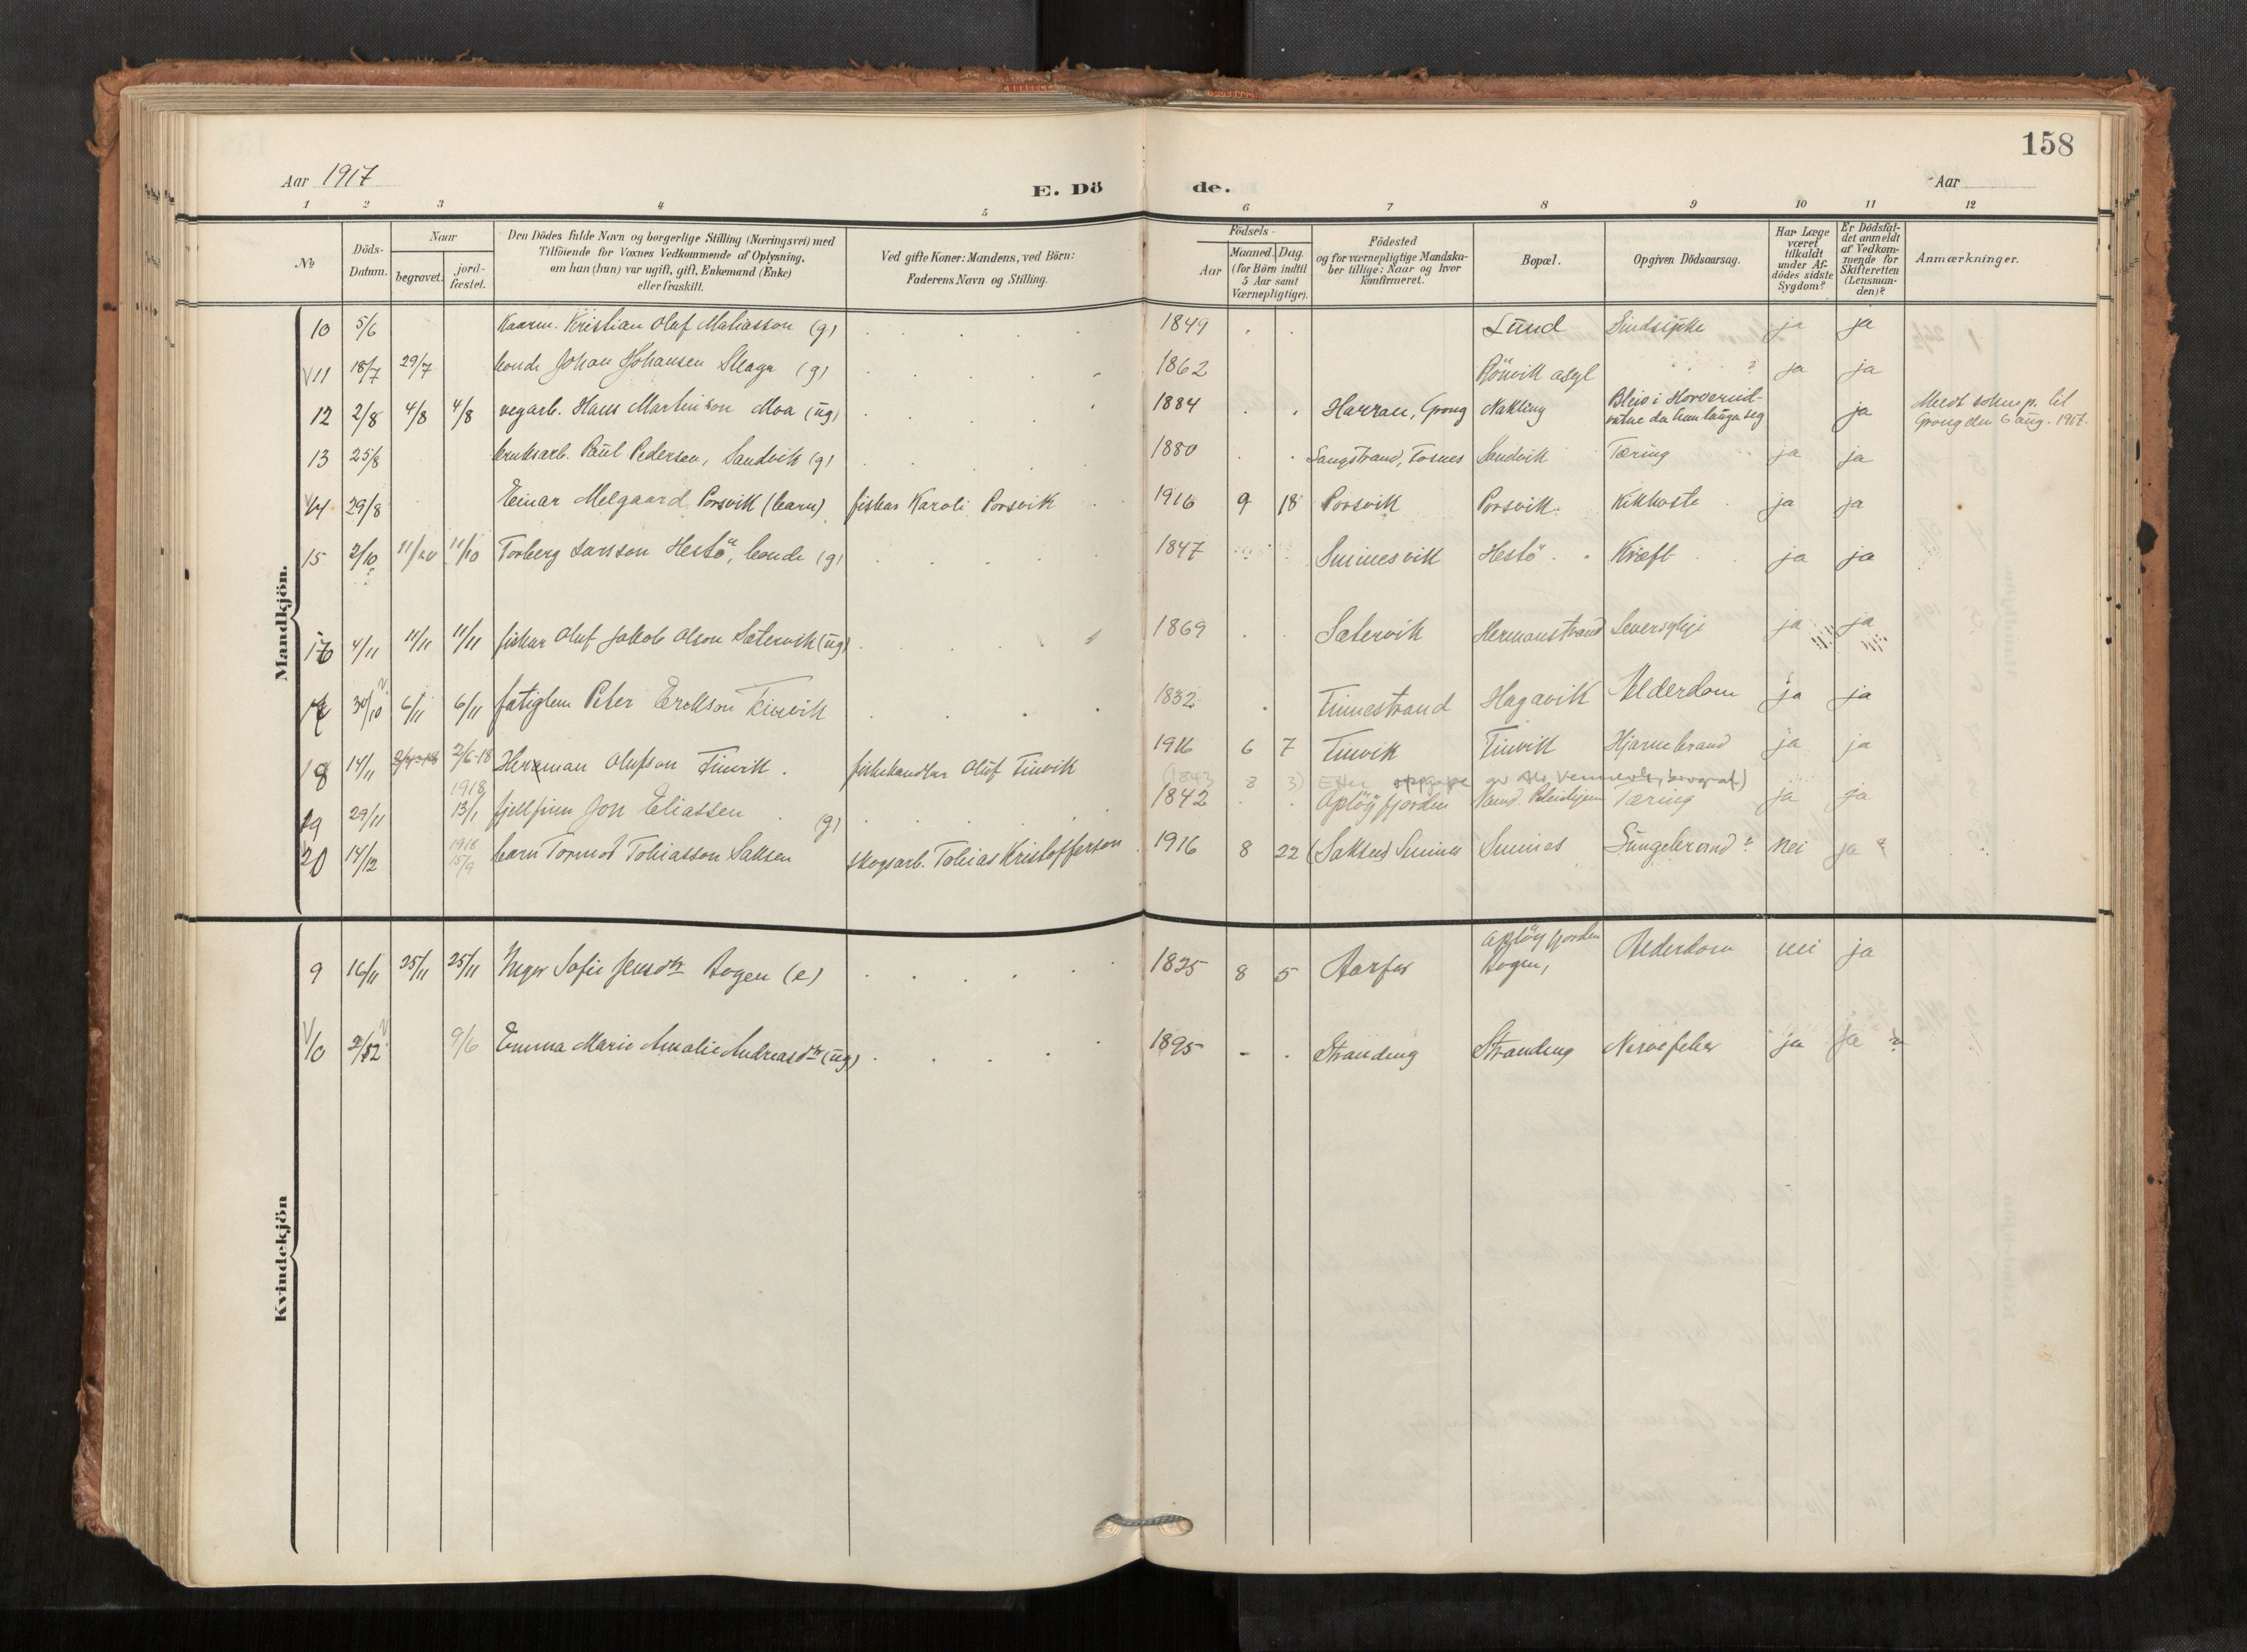 158
Aar 1917
E. Dö
de.
Aar
1 2 3 4 5 6 7 8 9 10 11 12
№
Döds-
Datum.
Naar
begravet.
jord-
fæstet.
Den Dödes fulde Navn og borgerlige Stilling (Næringsvei) med
Tilföiende for Voxnes Vedkommende af Oplysning,
om han (hun) var ugift, gift, Enkemand (Enke)
eller fraskilt.
Ved gifte Koner: Mandens, ved Börn:
Faderens Navn og Stilling.
Födsels-
Aar
Maaned. Dag.
(for Börn indtil
5 Aar samt
Værnepligtige).
Födested
og for værnepligtige Mandska-
ber tillige: Naar og hvor
konfirmeret.
Bopæl.
Opgiven Dödsaarsag.
Har Læge
været
tilkaldt
under Af-
dödes sidste
Sygdom?
Er Dödsfal-
det anmeldt
af Vedkom-
mende for
Skifteretten
(Lensman-
den)?
Anmærkninger.
Mandkjön.
10 5/6 Kristian Oluf Matiasson (g) 1849 Lund Sindsyke ja ja
11 18/7 29/7 bonde Johan Johansen Skage (g) 1862 Rönvik asyl ? ja ja
12 2/8 4/8 4/8 vegarb. Hans Martinson Moa (ug) 1884 Harran, Grong Nakling Bleiv i Horverind-
vatne da han lauga seg ja Meldt sokнep. til
Grong den 6 aug. 1917.
13 25/8 bruksarb. Paul Pedersen, Sandvik (g) 1880 Langstrand, Fosnes Sandvik Tæring ja ja
14 29/8 Einar Melgaard Porsvik (barn) fiskar Karoli Porsvik 1916 9 18 Porsvik Porsvik Kikhoste ja ja
15 2/10 11/10 11/10 Torberg Larsson Hestö, bonde (g) 1847 Smines vik Hestö Kræft ja ja
16 4/11 11/11 11/11 fiskar Oluf Jakob Olson Sætervik (ug) 1869 Sætervik Hermanstrand Leversykje ja ja
17 30/10 6/11 6/11 fatiglem Peter Erikson Finvik 1832 Finnestrand Hagavik Alderdom ja ja
18 14/11 2/6-18 Herman Olufson Finvik. fiskehandlar Oluf Finvik 1916 6 7 Finvik Finvik Hjarnebrand ja ja
(1843 8 3) Etter oppgave av
19 29/11 1918 13/1 fjellfinn Jon Eliassen (g) 1842 Aplöy fjorden Namd. Pleiehjem Tæring ja ja
20 14/12 1918 15/9 barn Tormod Tobiasson Saksen skogsarb. Tobias Kristofferson 1916 8 22 (Saksen) Smines Smines Lungebrand? nei ja ?
Kvindekjön
9 16/11 25/11 25/11 Inger Sofie Jensdtr Bogen (e) 1825 8 5 Aarfor Aplöy fjorden
Bogen, Alderdom nei ja
10 2/12 9/6 Emma Marie Amalie Andreasdtr (ug) 1895 Stranding Stranding Nervefeber ja ja ?